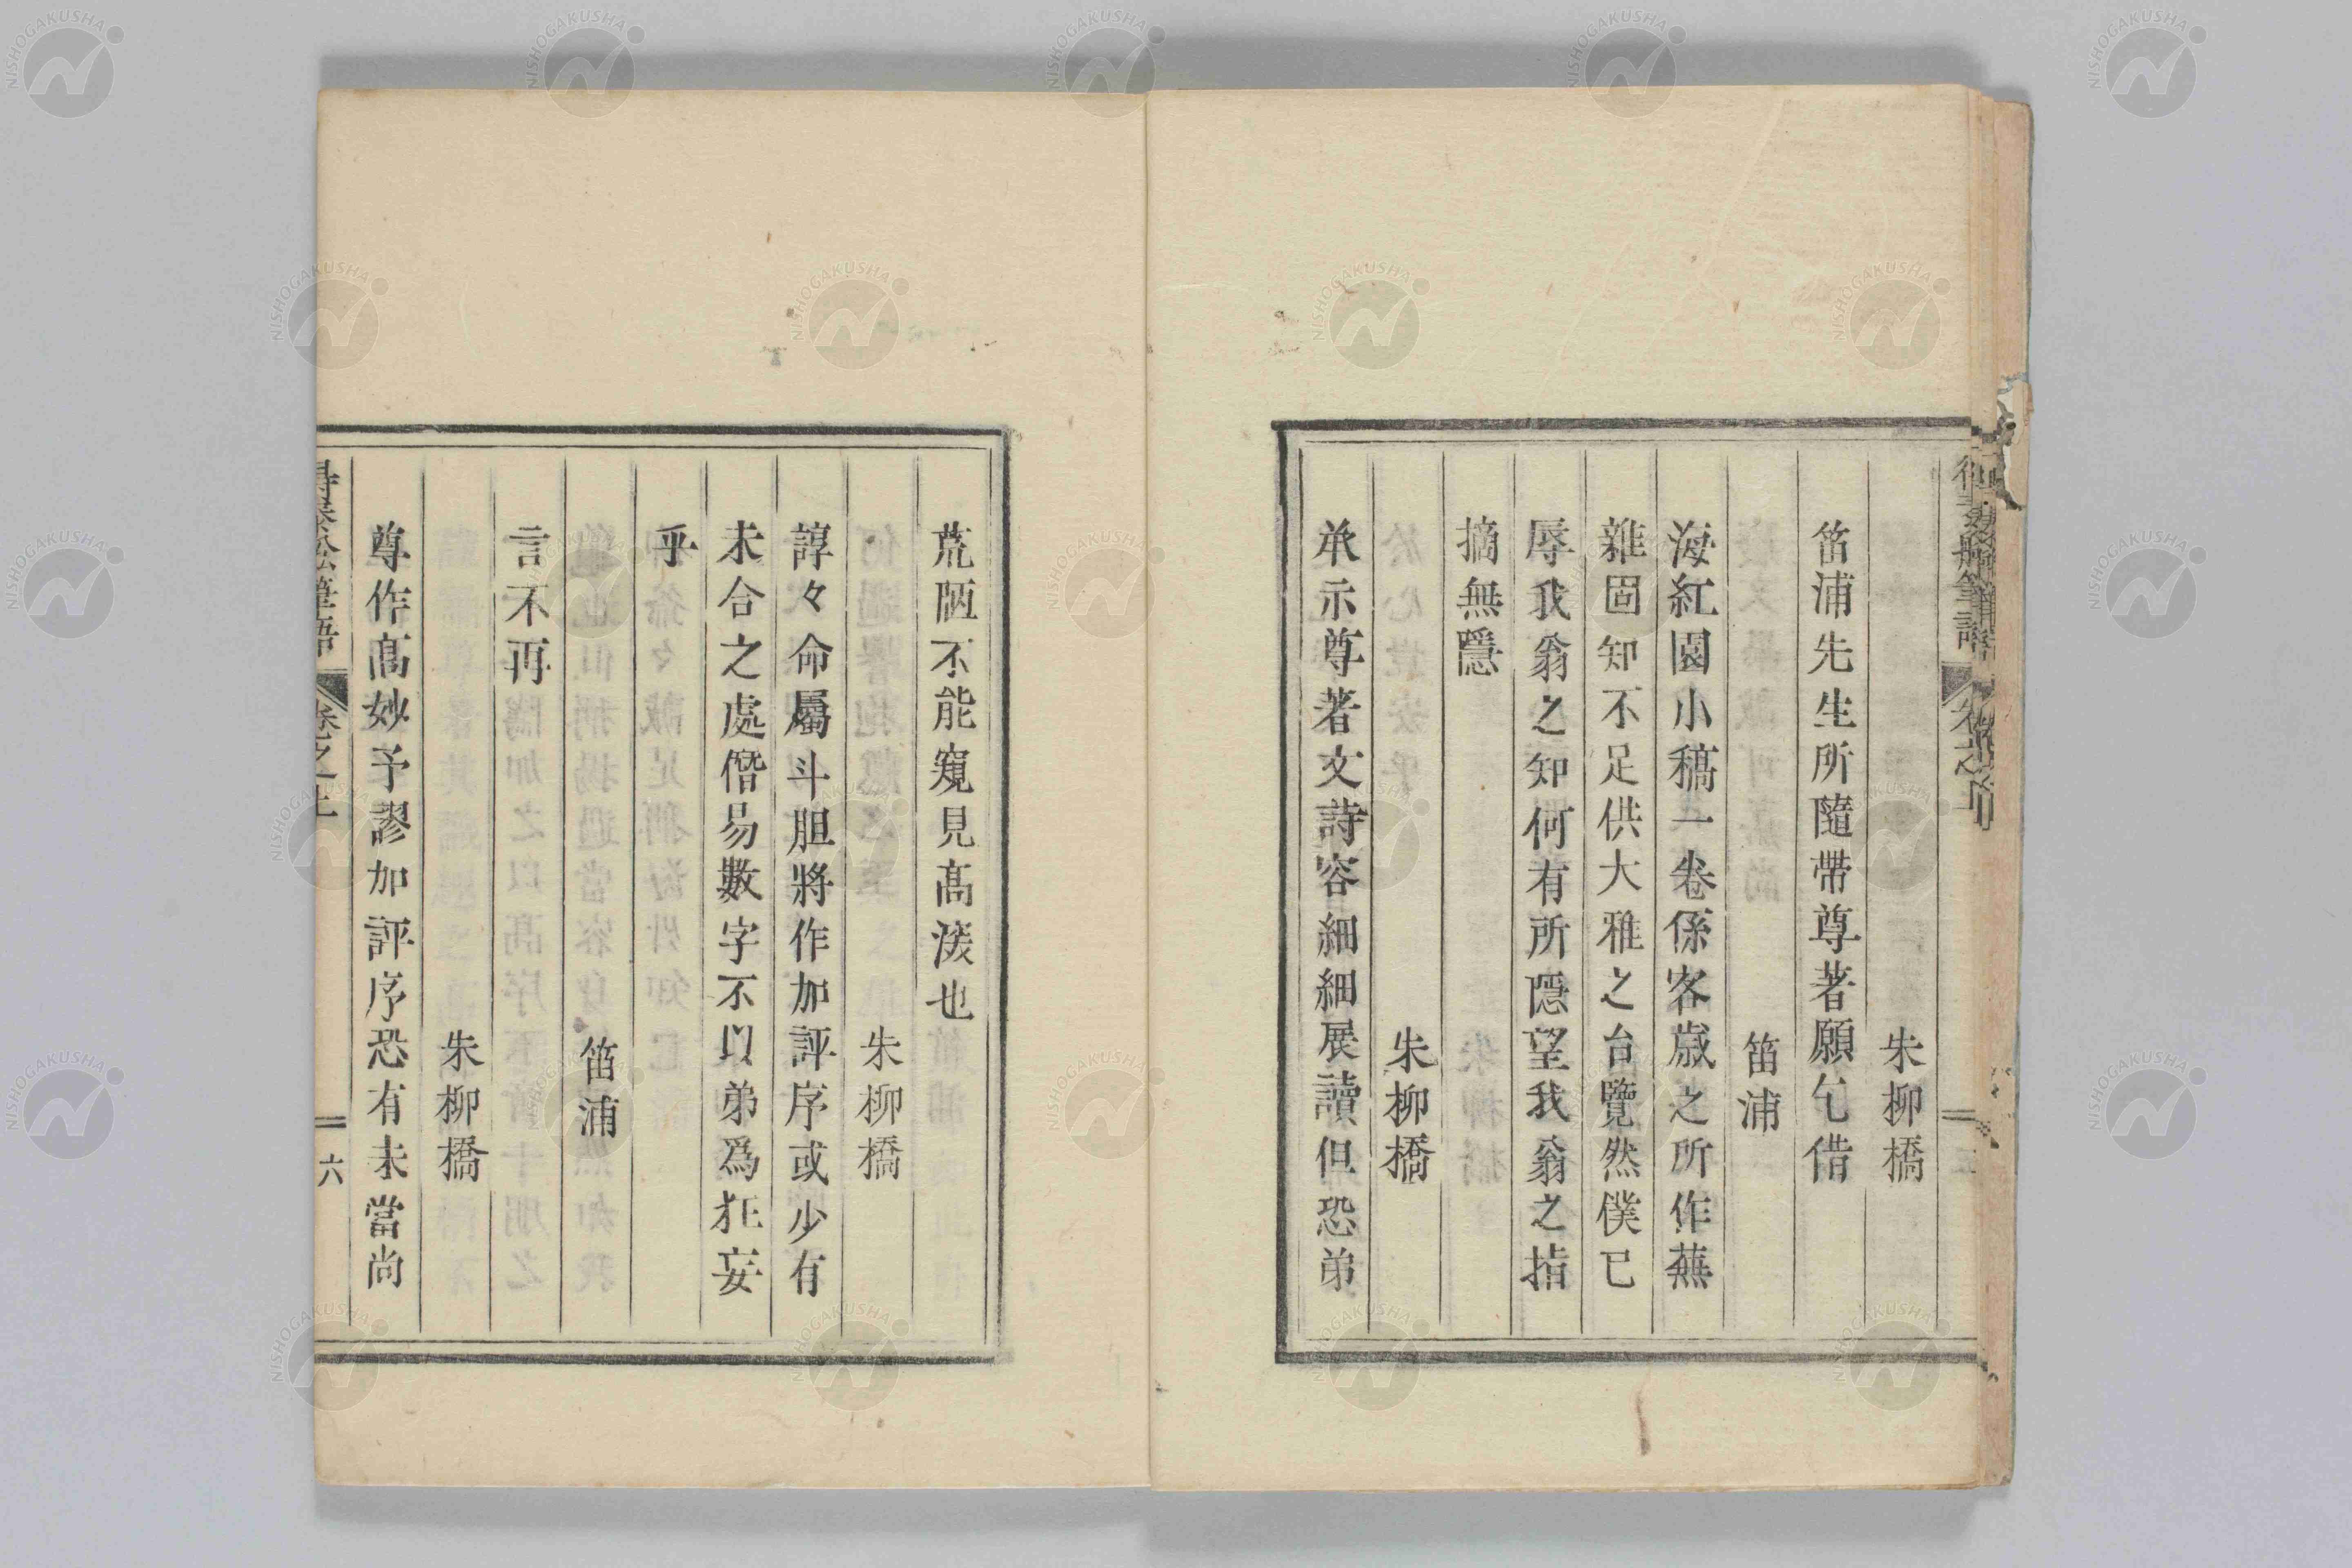 朱柳橋
笛浦先生所隨帶尊著願乞借
笛浦
海紅園小稿一卷係客歲之所作蕪
雜固知不足供大雅之台覽然僕已
辱我翁之知何有所隱望我翁之指
摘無隱
朱柳橋
承示尊著文詩容細細展讀但恐弟
荒陋不能窺見髙深也
朱柳橋
諄々命屬斗胆將作加評序或少有
未合之處僭易數字不以弟爲狂妄
乎
笛浦
言不再
朱柳橋
尊作髙妙予謬加評序恐有未當尚
卷之上
六
NISHOGAKUSHA